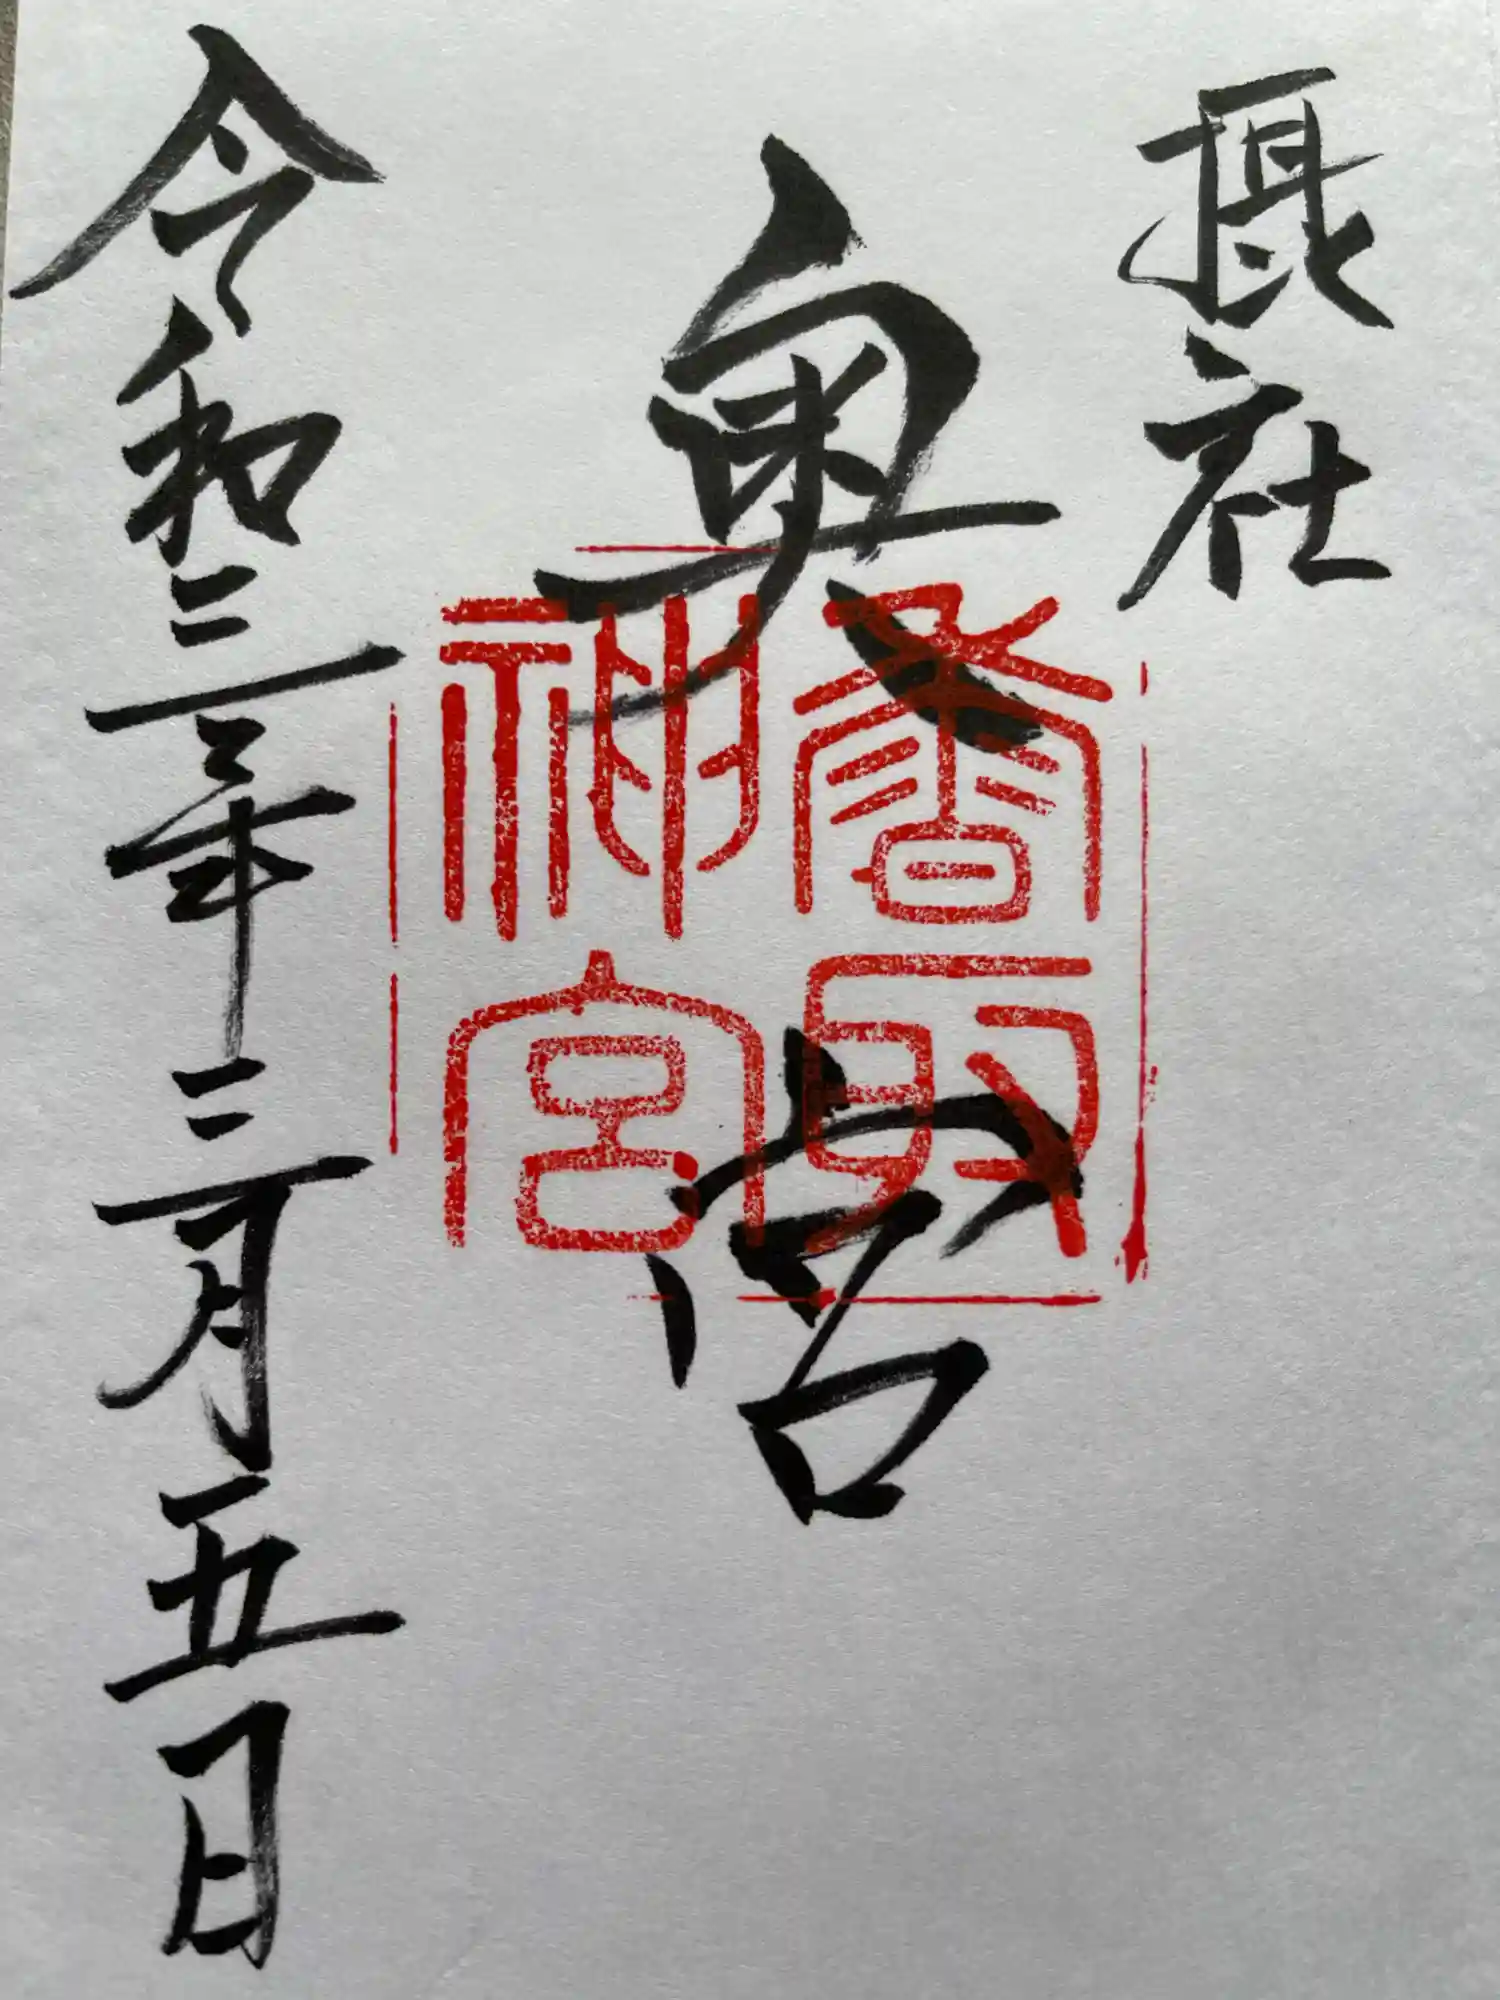 摂社
奥宮
香取
神宮
令和三年三月五日